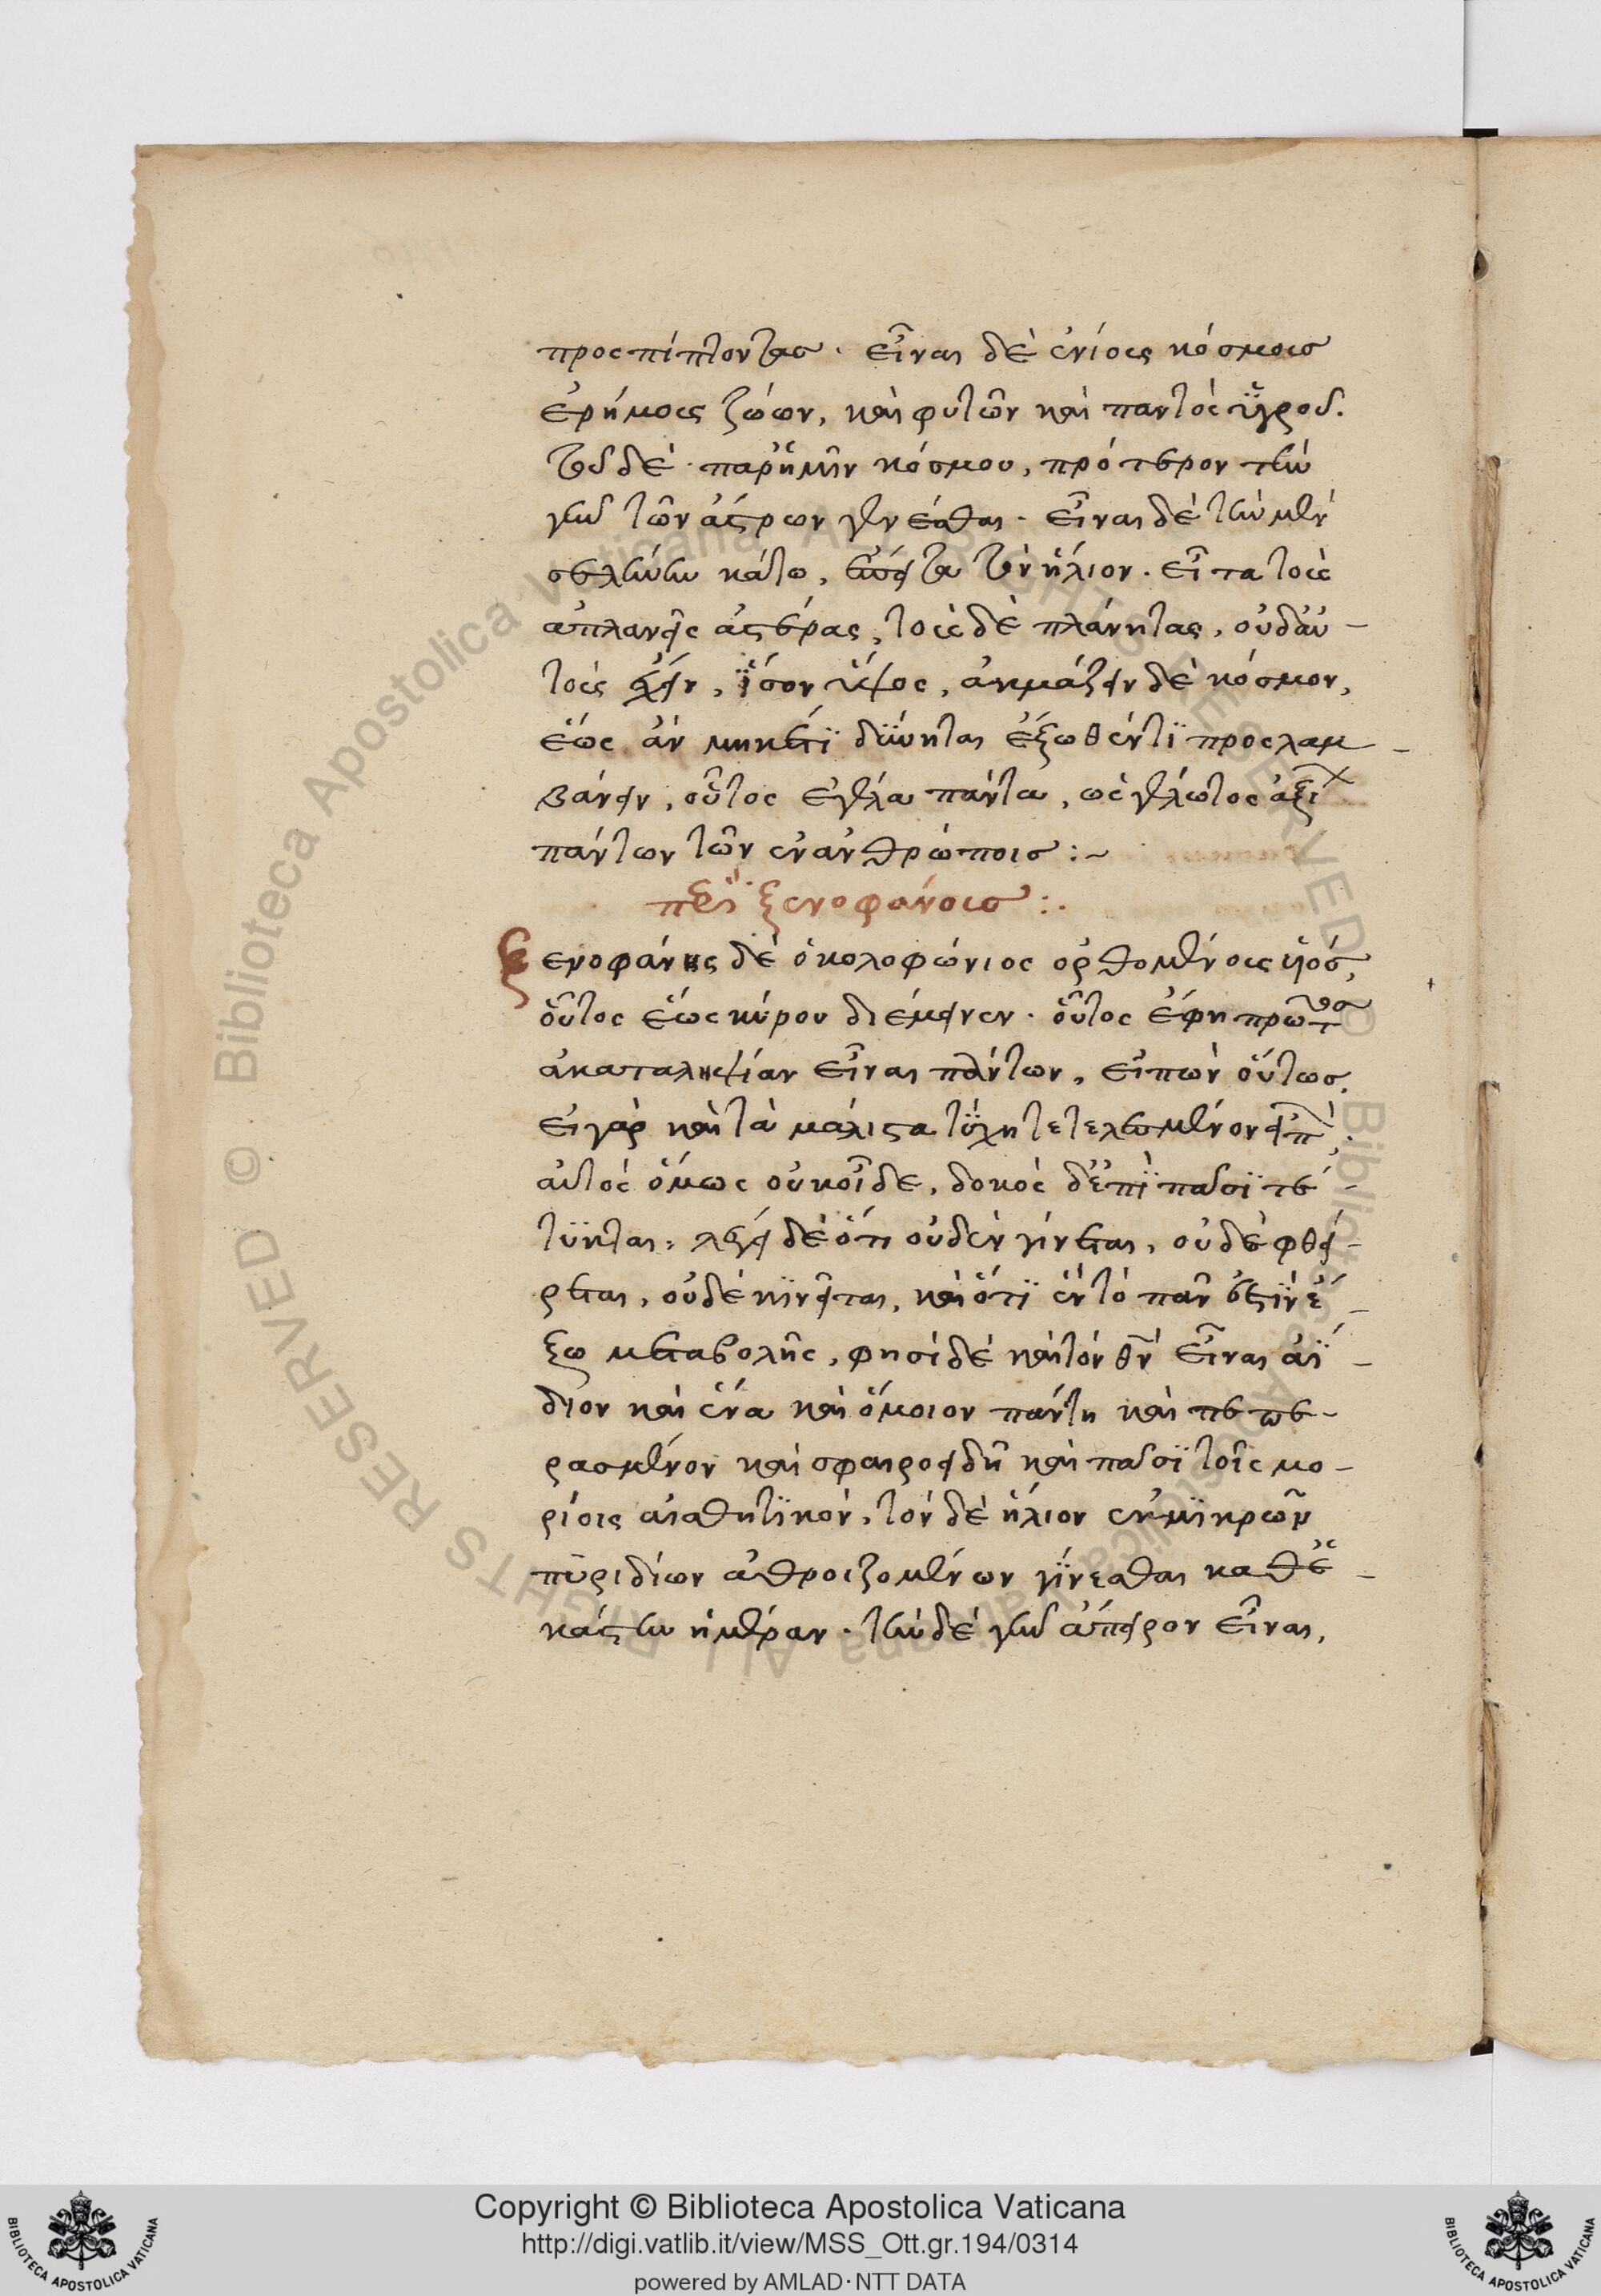 προσπίπτοντας · εἶναι δὲ ἐνίους κόσμους
ἐρήμους ζώων, καὶ φυτῶν καὶ παντὸς ὑγροῦ.
τοῦ δὲ παρ' ἡμῖν κόσμου, πρότερον τὴν
γῆν τῶν ἄστρων γενέσθαι · εἶναι δὲ τὴν μὲν
σελήνην κάτω, ἔπειτα τὸν ἥλιον · εἶτα τοὺς
ἀπλανεῖς ἀστέρας, τοὺς δὲ πλάνητας, οὐδ' αὐ-
τοὺς ἔχειν, ἴσον ὕψος, ἀκμάζειν δὲ κόσμον,
ἕως ἂν μηκέτι δύνηται ἔξωθέν τι προσλαμ-
βάνειν, οὗτος ἐγέλα πάντα, ὡς γέλωτος ἀξί
πάντων τῶν ἐν ἀνθρώποις :~
περὶ ξενοφάνους :.
Ξενοφάνης δὲ ὁ κολοφώνιος ὀρθομένους υἱός,
οὗτος ἕως κύρου διέμεινεν · οὗτος ἔφη πρῶτος
ἀκαταληψίαν εἶναι πάντων, εἰπὼν οὕτως.
εἰ γὰρ καὶ τὰ μάλιστα τύχη τετελεσμένον εἰπὼν.
αὐτὸς ὅμως οὐκ οἶδε, δοκὸς δ' ἐπὶ πᾶσι τέ-
τυκται: λέγει δὲ ὅτι οὐδὲν γίνεται, οὐδὲ φθεί-
ρεται, οὐδὲ κινεῖται, καὶ ὅτι ἓν τὸ πᾶν ἐστιν ἔ-
ξω μεταβολῆς, φησὶ δὲ καὶ τὸν θν εἶναι ἀΐ-
διον καὶ ἕνα καὶ ὅμοιον πάντη καὶ πεπε-
ρασμένον καὶ σφαιροειδῆ καὶ πᾶσι τοῖς μο-
ρίοις αἰσθητικὸν, τὸν δὲ ἥλιον ἐκ μικρῶν
πυριδίων ἀθροιζομένων γίνεσθαι καθ' ἑ-
κάστην ἡμέραν · τὴν δὲ γῆν ἄπειρον εἶναι,
© Biblioteca Apostolica Vaticana ALL RIGHTS RESERVED
© Biblioteca Apostolica Vaticana ALL RIGHTS RESERVED
BIBLIOTECA APOSTOLICA VATICANA
Copyright © Biblioteca Apostolica Vaticana
http://digi.vatlib.it/view/MSS_Ott.gr.194/0314
powered by AMLAD·NTT DATA
BIBLIOTECA APOSTOLICA VATICANA